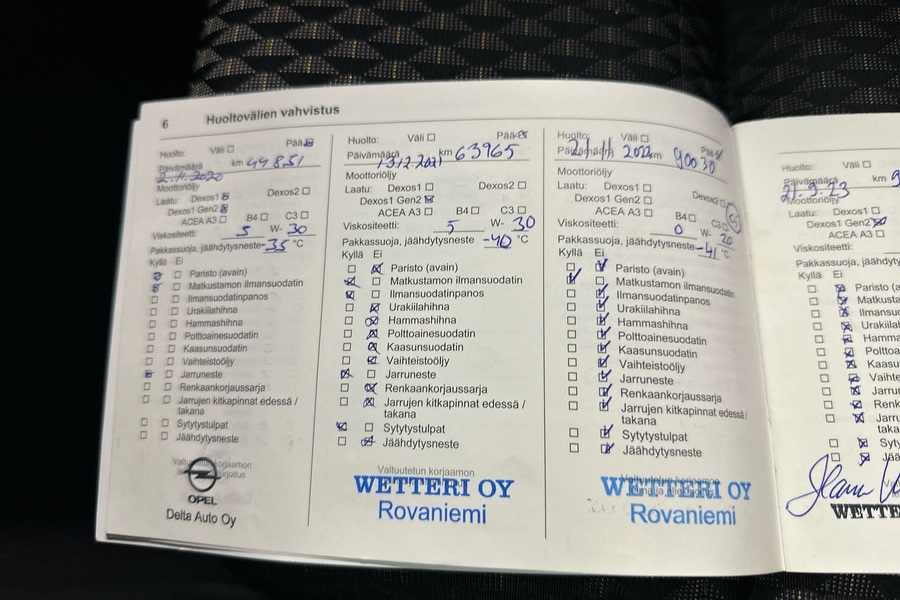 6 Huoltovälien vahvistus
Huolto: Väli Pää
Päivämäärä 2.11.2020 km 44851
Moottoriöljy
Laatu: Dexos1 Dexos2
Dexos1 Gen2
ACEA A3 B4 C3
Viskositeetti: 5 W- 30
Pakkassuoja, jäähdytysneste -35 °C
Kyllä Ei
Paristo (avain)
Matkustamon ilmansuodatin
Ilmansuodatinpanos
Urakiilahihna
Hammashihna
Polttoainesuodatin
Kaasunsuodatin
Vaihteistoöljy
Jarruneste
Renkaankorjaussarja
Jarrujen kitkapinnat edessä /
takana
Sytytystulpat
Jäähdytysneste
OPEL
Delta Auto Oy
Huolto: Väli Pää
Päivämäärä 13.12.2021 km 63965
Moottoriöljy
Laatu: Dexos1 Dexos2
Dexos1 Gen2
ACEA A3 B4 C3
Viskositeetti: 5 W- 30
Pakkassuoja, jäähdytysneste -40 °C
Kyllä Ei
Paristo (avain)
Matkustamon ilmansuodatin
Ilmansuodatinpanos
Urakiilahihna
Hammashihna
Polttoainesuodatin
Kaasunsuodatin
Vaihteistoöljy
Jarruneste
Renkaankorjaussarja
Jarrujen kitkapinnat edessä /
takana
Sytytystulpat
Jäähdytysneste
Valtuutetun korjaamon
WETTERI OY
Rovaniemi
Huolto: Väli Pää
Päivämäärä 21.11 2022 km 90030
Moottoriöljy
Laatu: Dexos1 Dexos2
Dexos1 Gen2
ACEA A3 B4 C3
Viskositeetti: 0 W- 20
Pakkassuoja, jäähdytysneste -41 °C
Kyllä Ei
Paristo (avain)
Matkustamon ilmansuodatin
Ilmansuodatinpanos
Urakiilahihna
Hammashihna
Polttoainesuodatin
Kaasunsuodatin
Vaihteistoöljy
Jarruneste
Renkaankorjaussarja
Jarrujen kitkapinnat edessä /
takana
Sytytystulpat
Jäähdytysneste
WETTERI OY
Rovaniemi
Huolto: Väli
Päivämäärä 21.9.23 km 9
Moottoriöljy
Laatu: Dexos1
Dexos1 Gen2
ACEA A3
Viskositeetti:
Pakkassuoja, jäähdyty
Kyllä Ei
Paristo (a
Matkusta
Ilmansu
Urakiilah
Hamma
Polttoa
Kaasu
Vaihte
Jarru
Renk
Jarru
taka
Syty
Jää
WETTE